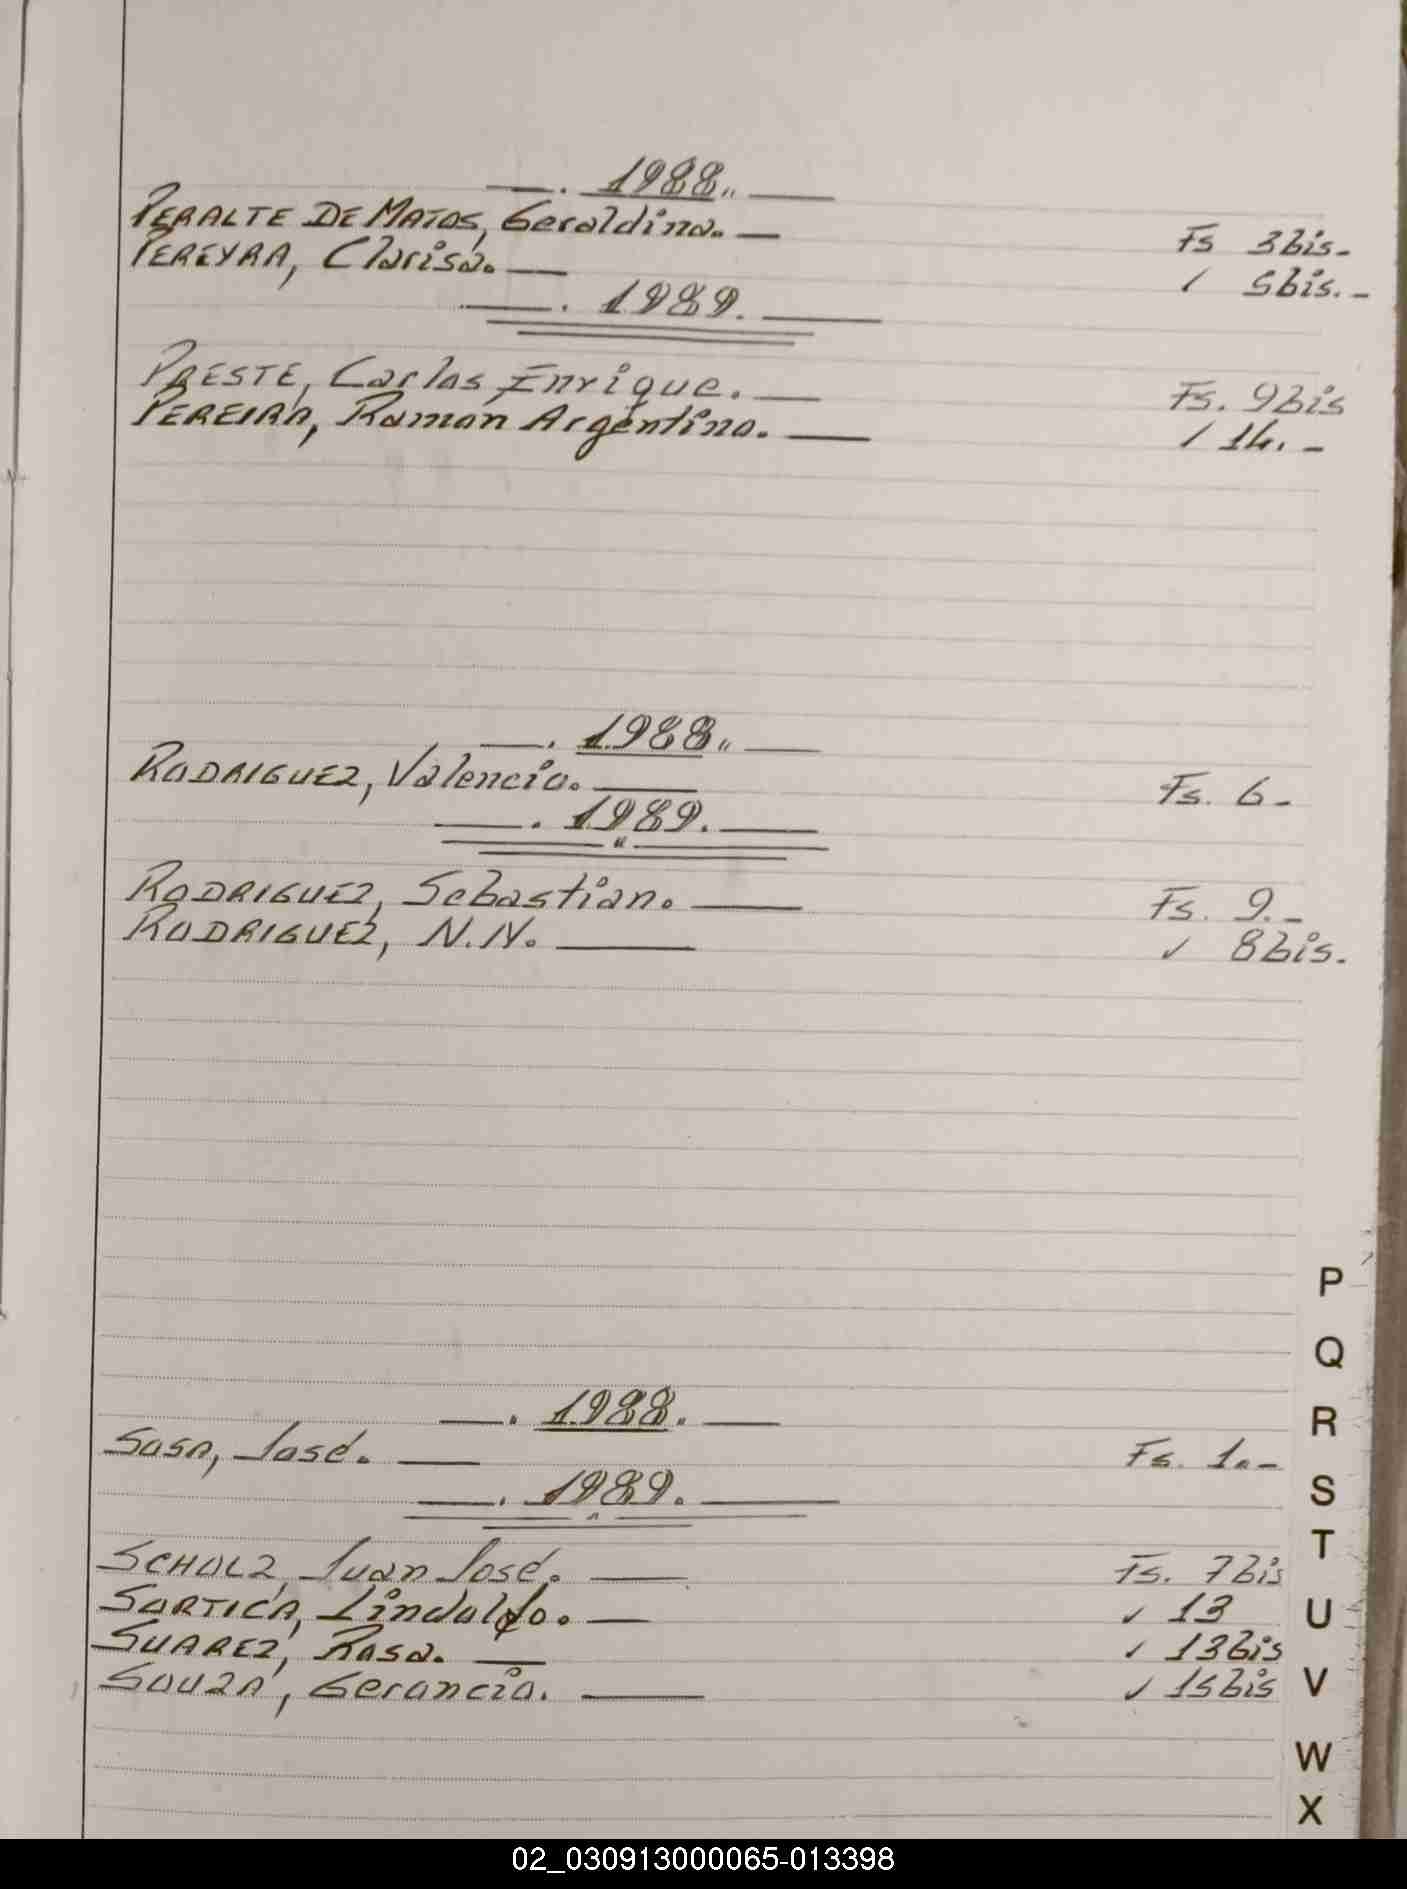 1988.,
PERALTE DE MATOS, Geraldina. Fs 3bis.-
PEREYRA, Clarisa. / 5bis.-
1989.
PRESTE, Carlos Enrique. Fs. 9bis
PEREIRA, Ramon Argentino. / 14.-
1988.,
RODRIGUEZ, Valencio. Fs. 6-
1989.
RODRIGUEZ, Sebastian. Fs. 9.-
RODRIGUEZ, N.N. ✓ 8bis.
1988.
SOSA, José. Fs. 1.-
1989.
SCHOLZ, Juan José. Fs. 7bis
SARTICA, Lindalfo. ✓ 13
SUAREZ, Rosa. ✓ 13bis
SOUZA, Gerancio. ✓ 15bis
P
Q
R
S
T
U
V
W
X
02_030913000065-013398